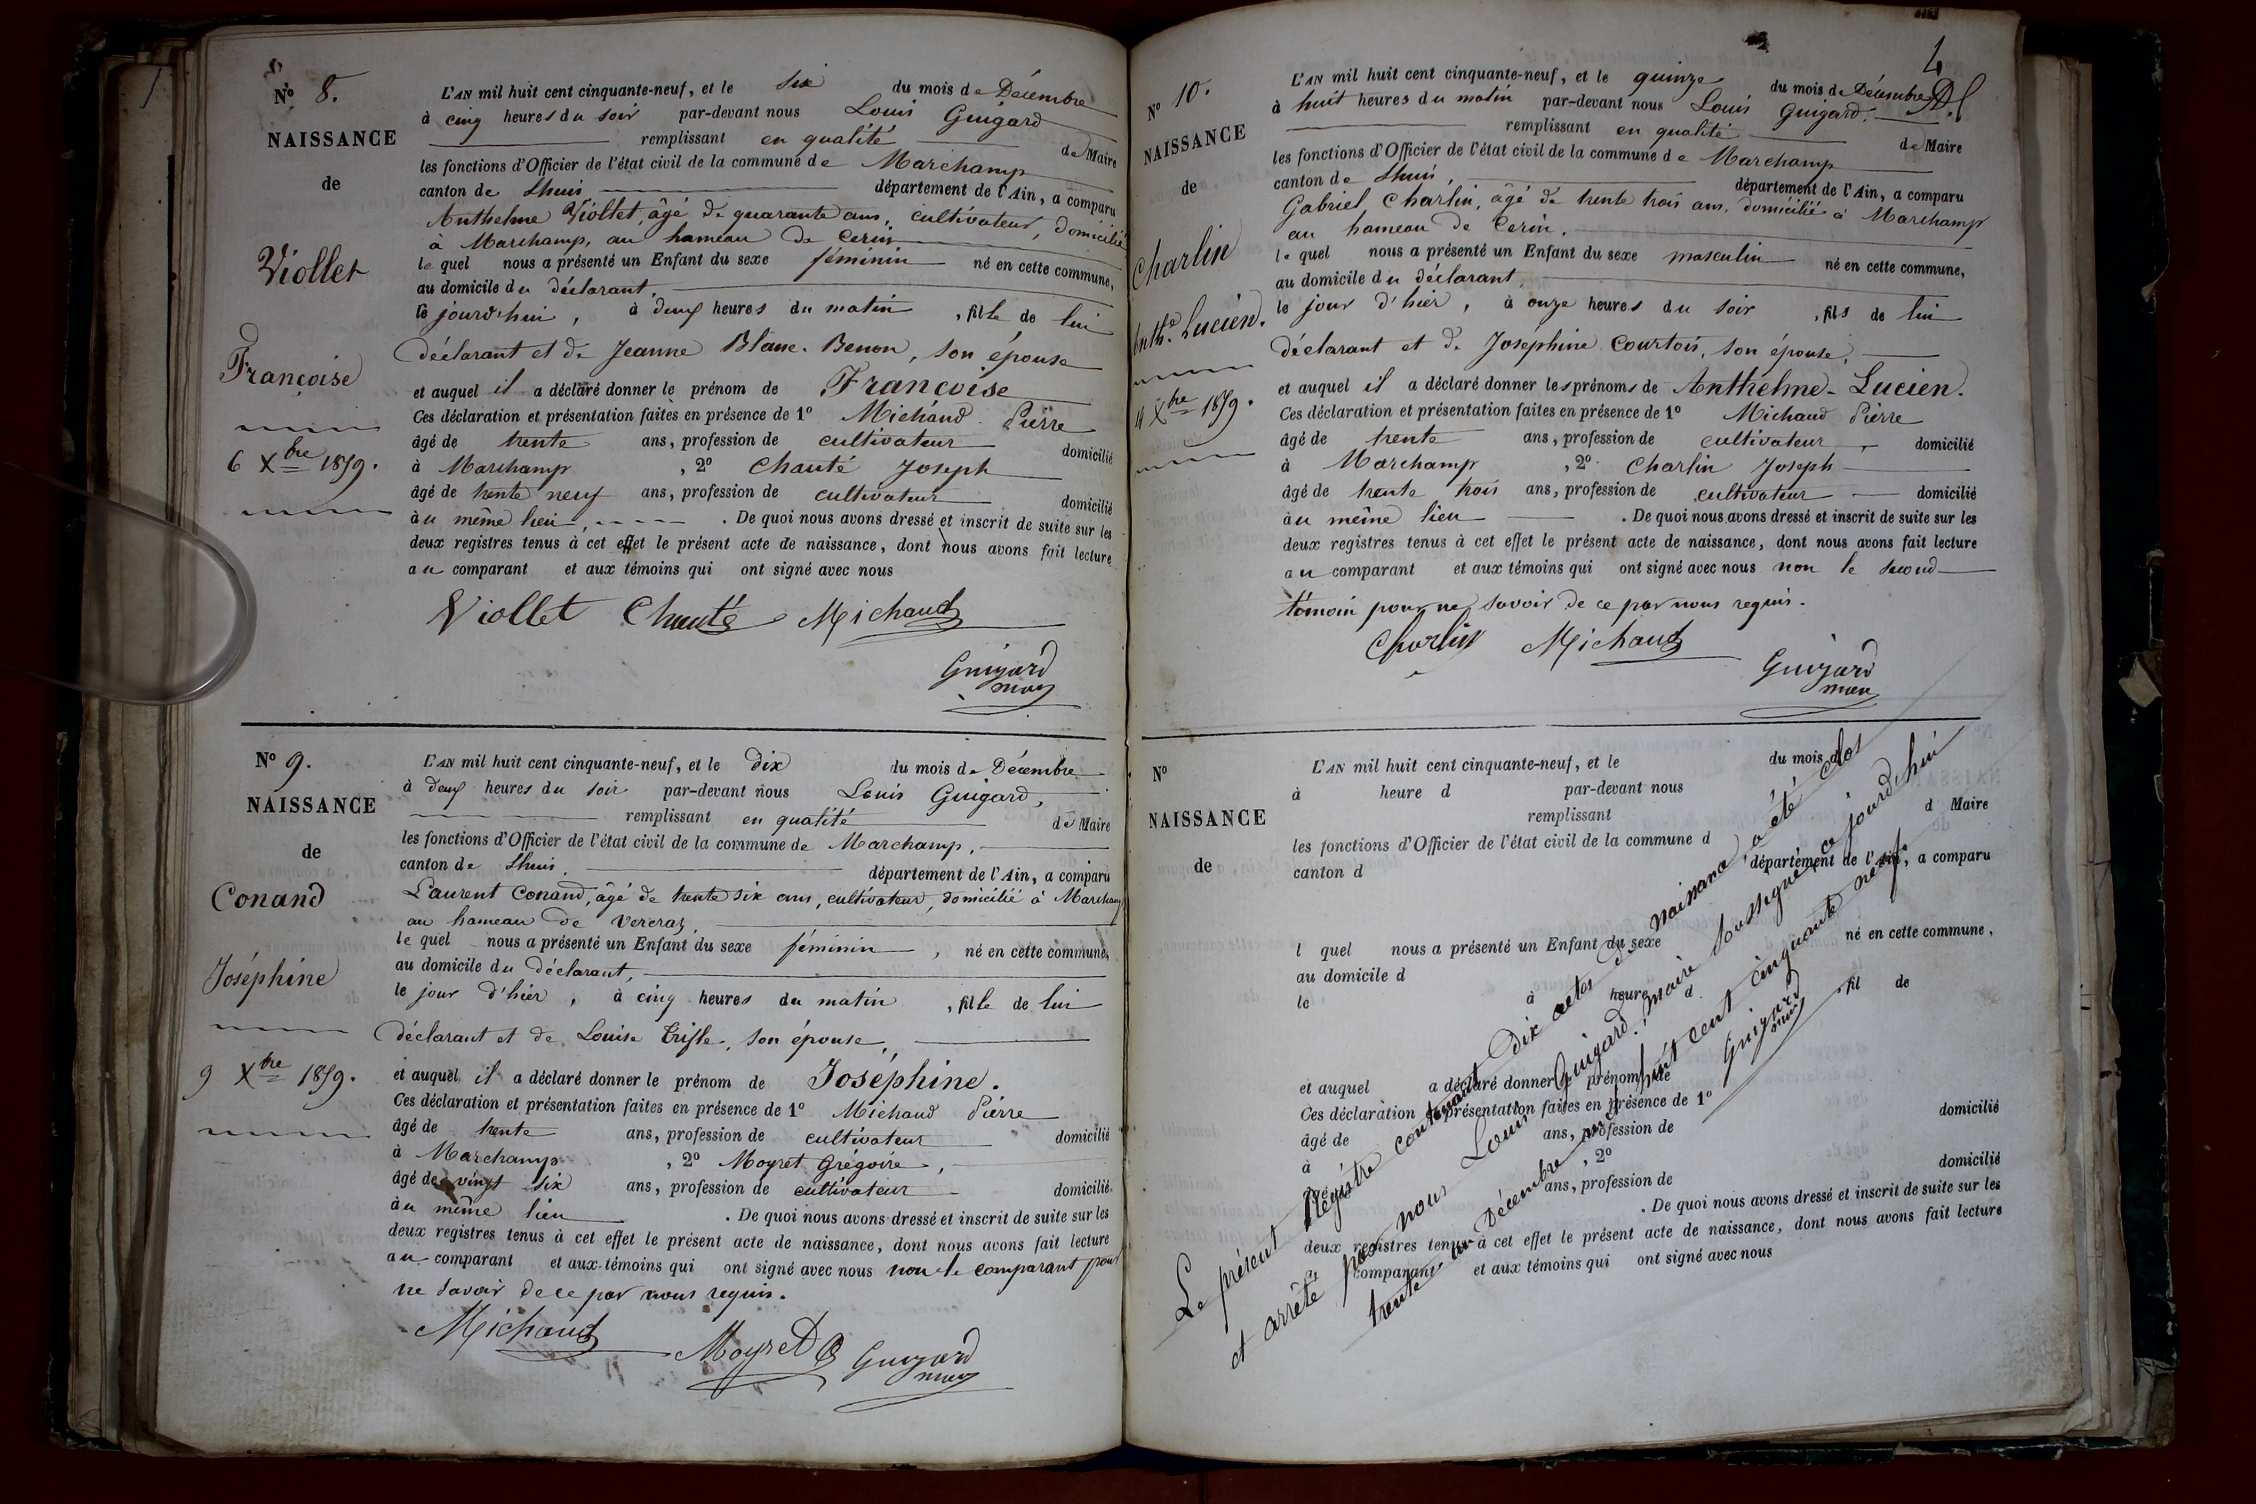 N° 8.
NAISSANCE
de
Viollet
Françoise
6 Xbre 1859.
L'AN mil huit cent cinquante-neuf, et le six du mois de Décembre
à cinq heures du soir par-devant nous Louis Guigard
remplissant en qualité de Maire
les fonctions d'Officier de l'état civil de la commune de Marchamp
canton de Lhuis département de l'Ain, a comparu
Anthelme Viollet, âgé de quarante ans, cultivateur, domicilié
à Marchamp, au hameau de Cerin
le quel nous a présenté un Enfant du sexe féminin né en cette commune,
au domicile du déclarant,
le jourd'hui, à deux heures du matin, fille de lui
déclarant et de Jeanne Blanc-Benon, son épouse
et auquel il a déclaré donner le prénom de Françoise
Ces déclaration et présentation faites en présence de 1° Michaud Pierre
âgé de trente ans, profession de cultivateur domicilié
à Marchamp, 2° Chanté Joseph
âgé de trente neuf ans, profession de cultivateur domicilié
au même lieu. De quoi nous avons dressé et inscrit de suite sur les
deux registres tenus à cet effet le présent acte de naissance, dont nous avons fait lecture
au comparant et aux témoins qui ont signé avec nous
Viollet Chanté Michaud
Guigard
N° 9.
NAISSANCE
de
Conand
Joséphine
9 Xbre 1859.
L'AN mil huit cent cinquante-neuf, et le dix du mois de Décembre
à deux heures du soir par-devant nous Louis Guigard,
remplissant en qualité de Maire
les fonctions d'Officier de l'état civil de la commune de Marchamp,
canton de Lhuis département de l'Ain, a comparu
Laurent Conand, âgé de trente six ans, cultivateur, domicilié à Marchamp
au hameau de Vercraz,
le quel nous a présenté un Enfant du sexe féminin, né en cette commune,
au domicile du déclarant,
le jour d'hier, à cinq heures du matin, fille de lui
déclarant et de Louise Trifle, son épouse,
et auquel il a déclaré donner le prénom de Joséphine.
Ces déclaration et présentation faites en présence de 1° Michaud Pierre
âgé de trente ans, profession de cultivateur domicilié
à Marchamp, 2° Moyret Grégoire,
âgé de vingt six ans, profession de cultivateur domicilié
au même lieu. De quoi nous avons dressé et inscrit de suite sur les
deux registres tenus à cet effet le présent acte de naissance, dont nous avons fait lecture
au comparant et aux témoins qui ont signé avec nous non le comparant pour
ne savoir de ce par nous requis.
Michaud Moyret Guigard
4
N° 10.
NAISSANCE
de
Charlin
Anthe Lucien.
14 Xbre 1859.
L'AN mil huit cent cinquante-neuf, et le quinze du mois de Décembre
à huit heures du matin par-devant nous Louis Guigard.
remplissant en qualité de Maire
les fonctions d'Officier de l'état civil de la commune de Marchamp
canton de Lhuis, département de l'Ain, a comparu
Gabriel Charlin, âgé de trente trois ans, domicilié à Marchamp
au hameau de Cerin.
le quel nous a présenté un Enfant du sexe masculin né en cette commune,
au domicile du déclarant,
le jour d'hier, à onze heures du soir, fils de lui
déclarant et de Joséphine Courtois, son épouse,
et auquel il a déclaré donner les prénoms de Anthelme-Lucien.
Ces déclaration et présentation faites en présence de 1° Michaud Pierre
âgé de trente ans, profession de cultivateur, domicilié
à Marchamp, 2° Charlin Joseph
âgé de trente trois ans, profession de cultivateur domicilié
au même lieu. De quoi nous avons dressé et inscrit de suite sur les
deux registres tenus à cet effet le présent acte de naissance, dont nous avons fait lecture
au comparant et aux témoins qui ont signé avec nous non le second
témoin pour ne savoir de ce par nous requis.
Charlin Michaud
Guigard
N°
NAISSANCE
de
L'AN mil huit cent cinquante-neuf, et le du mois d
à heure d par-devant nous
remplissant d Maire
les fonctions d'Officier de l'état civil de la commune d
canton d département de l'Ain, a comparu
l quel nous a présenté un Enfant du sexe né en cette commune,
au domicile d
le à heure d, fil de
et auquel a déclaré donner prénom de
Ces déclaration et présentation faites en présence de 1°
âgé de ans, profession de domicilié
à, 2°
âgé de ans, profession de domicilié
. De quoi nous avons dressé et inscrit de suite sur les
deux registres tenus à cet effet le présent acte de naissance, dont nous avons fait lecture
comparant et aux témoins qui ont signé avec nous
Le présent Régistre contenant dix actes de naissance a été clos
et arrêté par nous Louis Guigard, maire soussigné ce jourd'hui
trente un Décembre mil huit cent cinquante neuf.
Guigard